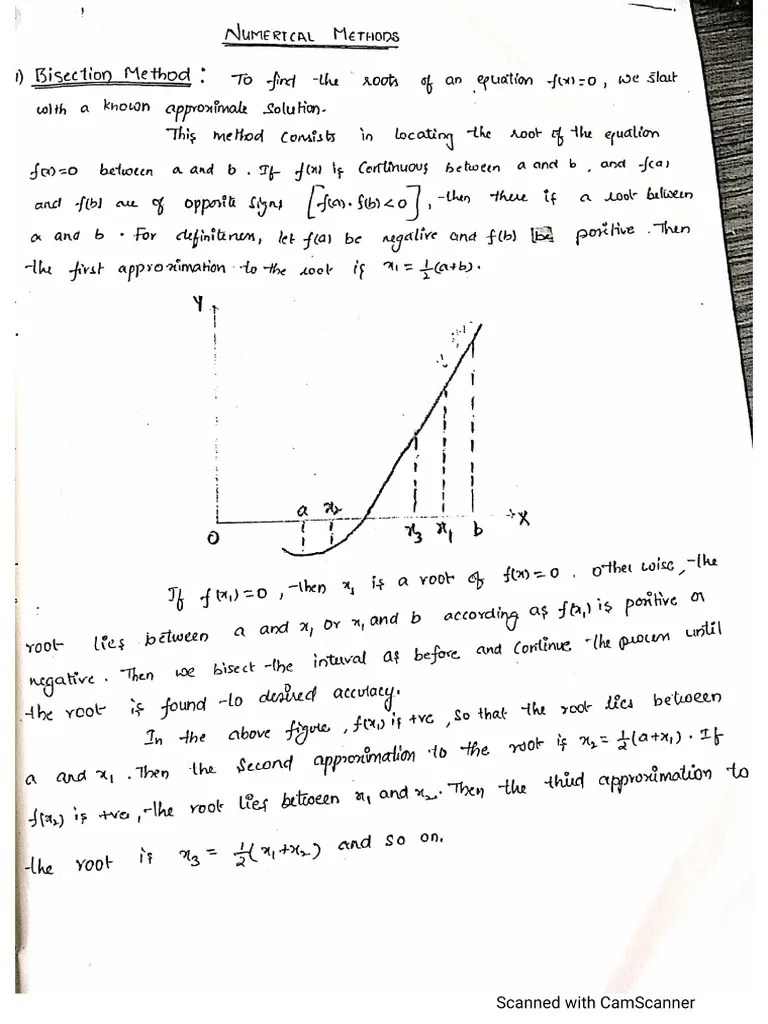 NUMERICAL METHODS
1) Bisection Method : To find the roots of an equation f(x)=0, we start
with a known approximate solution.
This method consists in locating the root of the equation
f(x)=0 between a and b. If f(x) is continuous between a and b, and f(a)
and f(b) are of opposite signs [f(a)·f(b)<0], then there is a root between
a and b. For definiteness, let f(a) be negative and f(b) be positive. Then
the first approximation to the root is x₁ = ½(a+b).
Y
a x₂
O x₃ x₁ b X
If f(x₁)=0, then x₁ is a root of f(x)=0. Otherwise, the
root lies between a and x₁ or x₁ and b according as f(x₁) is positive or
negative. Then we bisect the interval as before and continue the process until
the root is found to desired accuracy.
In the above figure, f(x₁) is +ve, so that the root lies between
a and x₁. Then the second approximation to the root is x₂ = ½(a+x₁). If
f(x₂) is +ve, the root lies between x₁ and x₂. Then the third approximation to
the root is x₃ = ½(x₁+x₂) and so on.
Scanned with CamScanner